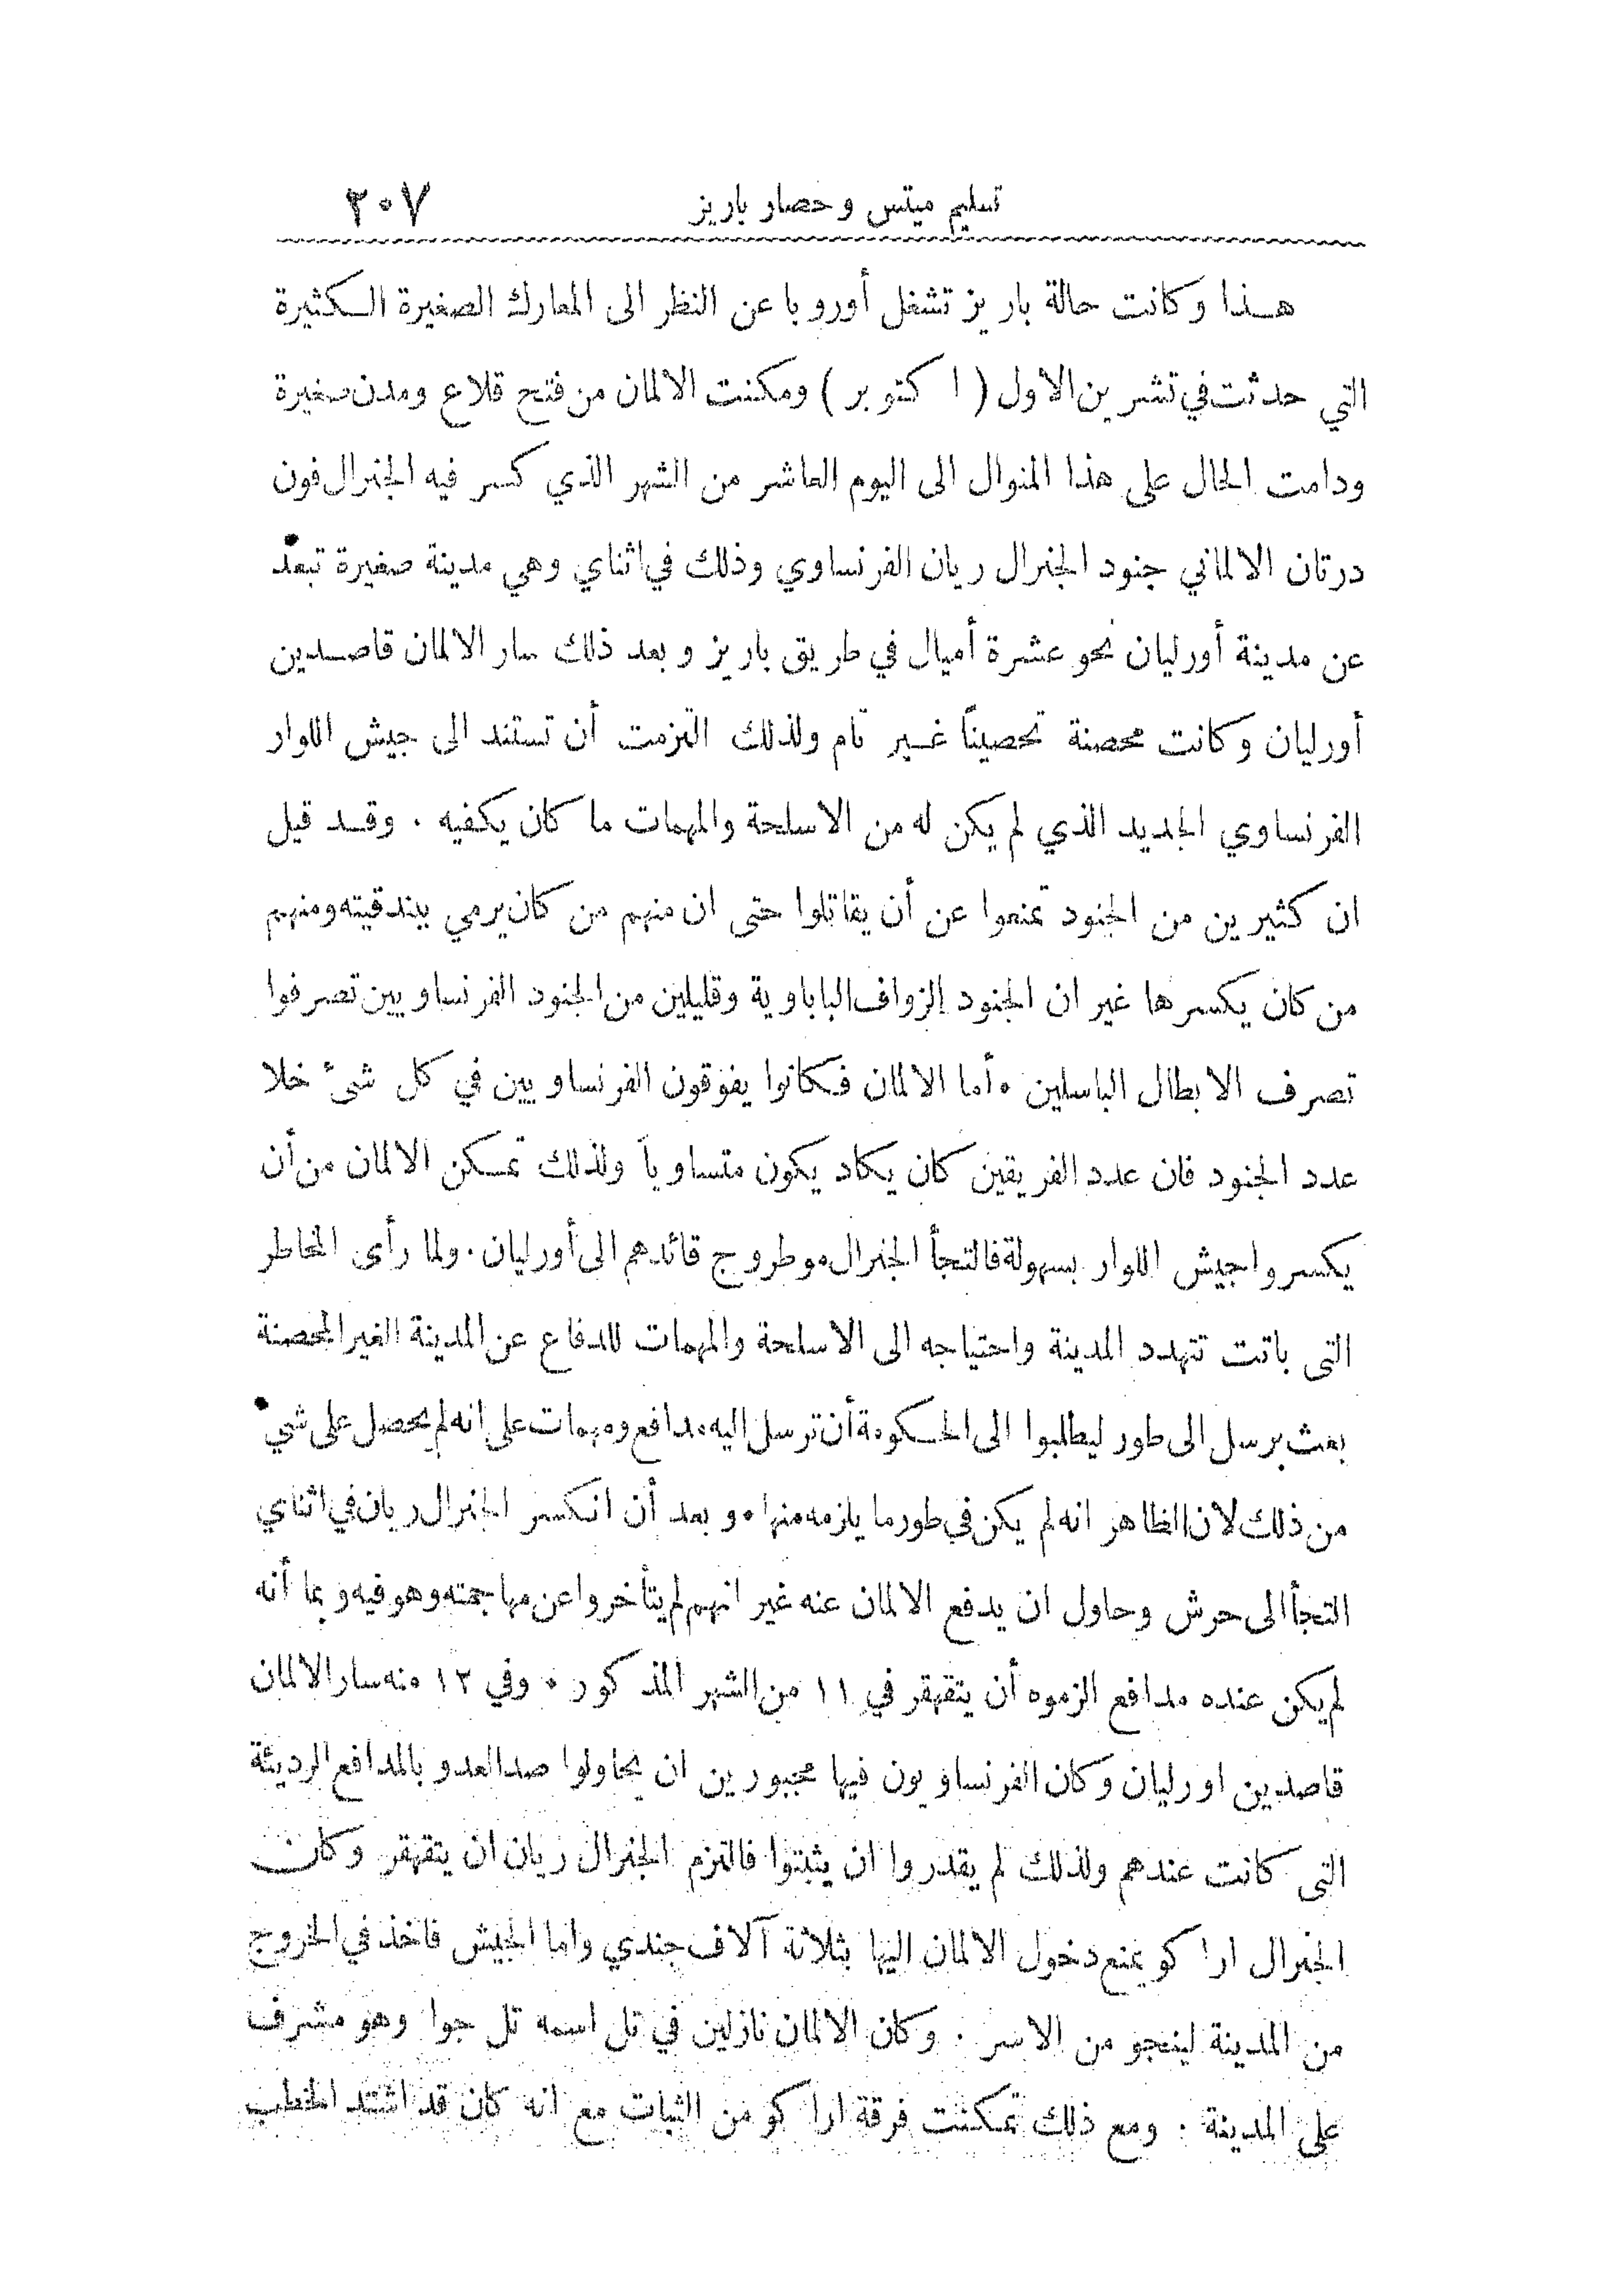 تسليم ميتس وحصار باريز ٢٠٧
هذا وكانت حالة باريز تشغل أوروبا عن النظر الى المعارك الصغيرة الكثيرة
التي حدثت في تشرين الاول ( اكتوبر ) ومكنت الالمان من فتح قلاع ومدن صغيرة
ودامت الحال على هذا المنوال الى اليوم العاشر من الشهر الذي كسر فيه الجنرال فون
درتان الالماني جنود الجنرال ريان الفرنساوي وذلك في اثناي وهي مدينة صغيرة تبعد
عن مدينة أورليان نحو عشرة أميال في طريق باريز وبعد ذلك سار الالمان قاصدين
أورليان وكانت محصنة تحصيناً غير تام ولذلك التزمت أن تستند الى جيش اللوار
الفرنساوي الجديد الذي لم يكن له من الاسلحة والمهمات ما كان يكفيه . وقد قيل
ان كثيرين من الجنود تمنعوا عن أن يقاتلوا حتى ان منهم من كان يرمي ببندقيته ومنهم
من كان يكسرها غير ان الجنود الزواف الباباوية وقليلين من الجنود الفرنساويين تصرفوا
تصرف الابطال الباسلين . أما الالمان فكانوا يفوقون الفرنساويين في كل شئ خلا
عدد الجنود فان عدد الفريقين كان يكاد يكون متساوياً ولذلك تمكن الالمان من أن
يكسروا جيش اللوار بسهولة فالتجأ الجنرال موطروج قائدهم الى أورليان . ولما رأى المخاطر
التى باتت تتهدد المدينة واحتياجه الى الاسلحة والمهمات للدفاع عن المدينة الغير المحصنة
بعث برسل الى طور ليطلبوا الى الحكومة أن ترسل اليه مدافع ومهمات على انه لم يحصل على شيء
من ذلك لان الظاهر انه لم يكن في طور ما يلزمه منها . وبعد أن انكسر الجنرال ريان في اثناي
التجأ الى حرش وحاول ان يدفع الالمان عنه غير انهم لم يتأخروا عن مهاجمته وهو فيه وبما أنه
لم يكن عنده مدافع الزموه أن يتقهقر في ١١ من الشهر المذكور . وفي ١٢ منه سار الالمان
قاصدين اورليان وكان الفرنساويون فيها مجبورين ان يحاولوا صد العدو بالمدافع الرديئة
التى كانت عندهم ولذلك لم يقدروا ان يثبتوا فالتزم الجنرال ريان ان يتقهقر وكان
الجنرال اراكو يمنع دخول الالمان اليها بثلاثة آلاف جندي واما الجيش فاخذ في الخروج
من المدينة لينجو من الاسر . وكان الالمان نازلين في تل اسمه تل جوا وهو مشرف
على المدينة . ومع ذلك تمكنت فرقة اراكو من الثبات مع انه كان قد اشتد الخطب